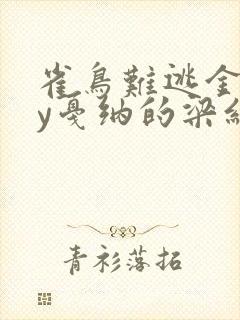 雀鳥難逃金
y戛纳的梁纟
青衫落拓